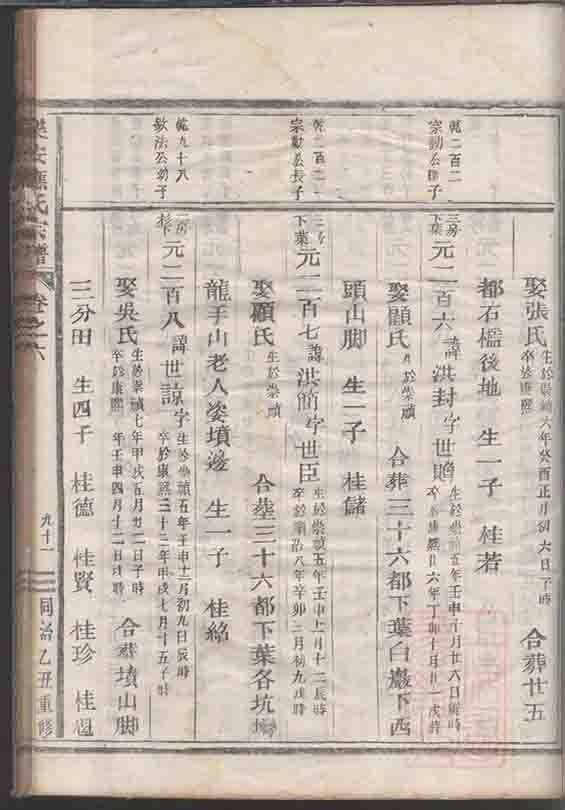 娶張氏 生於崇禎六年癸酉正月初六日子時 卒於康熙 合葬廿五
都石檻後地 生一子 桂若
乾二百二 宗勳公次子
三房下葉 元二百六 諱洪封字世贈 生於崇禎五年壬申十月廿六日辰時 卒於康熙廿六年丁卯十月廿一戌時
娶顧氏 生於崇禎 合葬三十六都下葉白巖下西
頭山脚 生一子 桂儲
乾二百二 宗勳公長子
三房下葉 元二百七 諱洪簡字世臣 生於崇禎五年壬申上月十二辰時 卒於順治八年辛卯三月初九戌時
娶顧氏 生於崇禎 合塟三十六都下葉各坑塢
龍手山老人姿墳邊 生一子 桂紹
乾九十八 欽法公幼子
二房杉下 元二百八 諱世諒字 生於崇禎五年壬申十二月初九日辰時 卒於康熙三十三年甲戌七月十五子時
娶吳氏 生於崇禎七年甲戌五月廿二日子時 卒於康熙 年壬申四月十二日戌時 合葬墳山脚
三分田 生四子 桂德 桂賢 桂珍 桂
樂安 氏宗譜 卷之六 九十一 同治乙丑重修